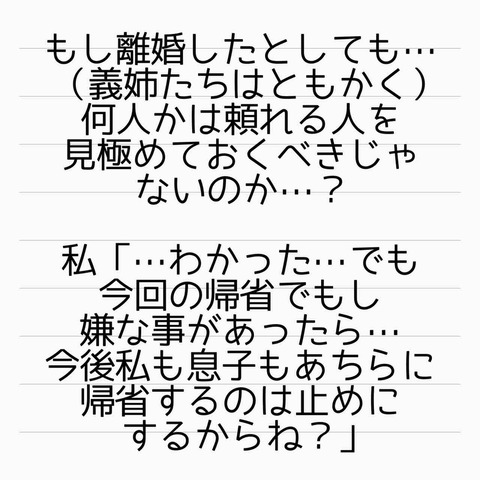 もし離婚したとしても…
（義姉たちはともかく）
何人かは頼れる人を
見極めておくべきじゃ
ないのか…？
私「…わかった…でも
今回の帰省でもし
嫌な事があったら…
今後私も息子もあちらに
帰省するのは止めに
するからね？」